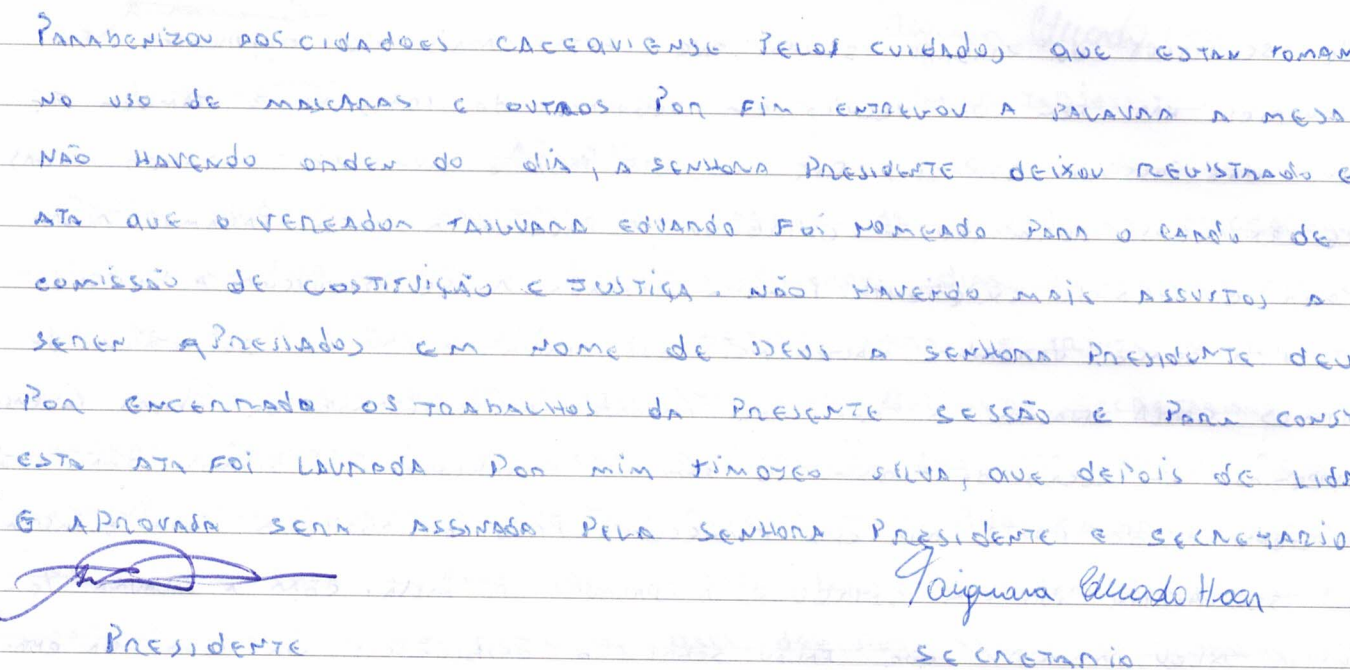 PARABENIZOU AOS CIDADOES CACEQUIENSE PELOS CUIDADOS QUE ESTAN TOMAN
NO USO DE MASCARAS E OUTROS POR FIM ENTREGOU A PALAVRA A MESA
NÃO HAVENDO ORDEN DO DIA, A SENHORA PRESIDENTE DEIXOU REGISTRADO E
ATA QUE O VEREADOR TAIGUARA EDUARDO FOI NOMEADO PARA O CARGO DE
COMISSÃO DE COSTITUIÇÃO E JUSTIÇA. NÃO HAVENDO MAIS ASSUTOS A
SEREN APRESSADOS EM NOME DE DEUS A SENHORA PRESIDENTE DEU
POR ENCERRADO OS TRABALHOS DA PRESENTE SESSÃO E PARA CONST
ESTA ATA FOI LAVRADA POR MIM TIMOTEO SILVA, QUE DEPOIS DE LIDA
E APROVADA SERA ASSINADA PELA SENHORA PRESIDENTE E SECRETARIO
Taiguara Eduardo
PRESIDENTE SECRETARIO